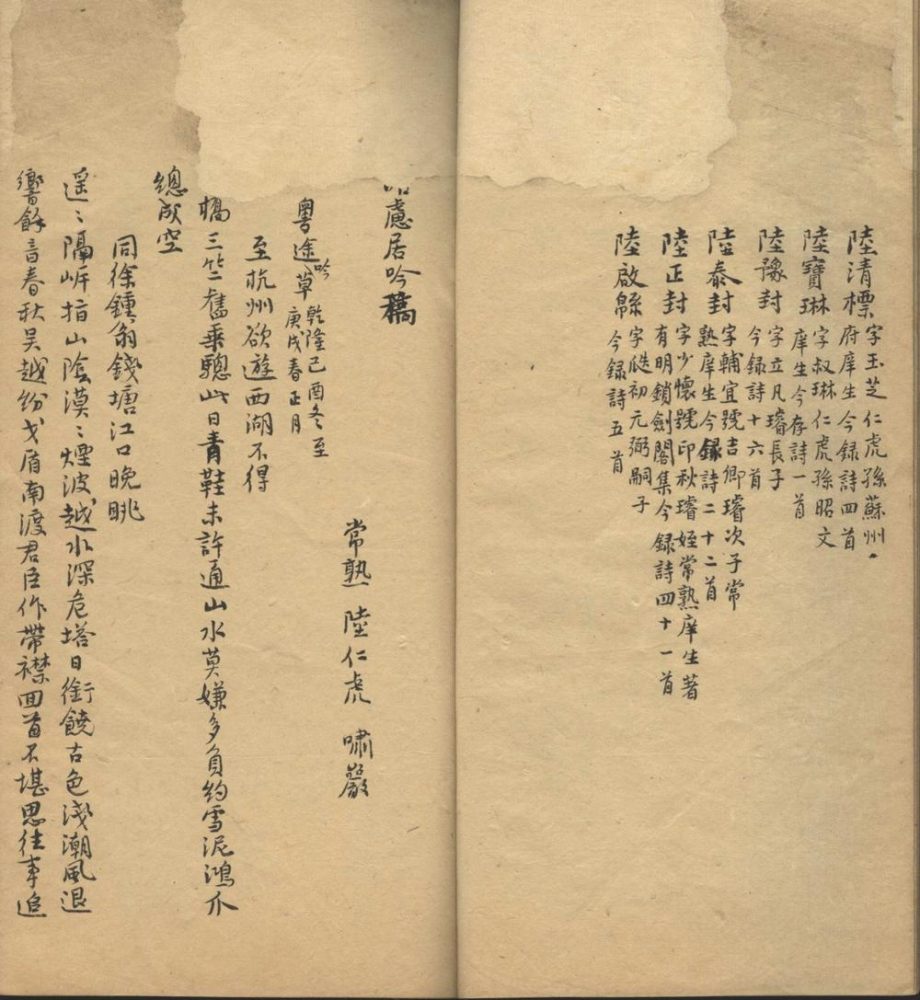 陸清標 字玉芝仁虎孫蘇州
府庠生今録詩四首
陸寶琳 字叔琳仁虎孫昭文
庠生今存詩一首
陸豫封 字立凡璿長子
今録詩十六首
陸泰封 字輔宜號吉卿璿次子常
熟庠生今録詩二十二首
陸正封 字少懷號印秋璿姪常熟庠生著
有明鎖劍閣集今録詩四十一首
陸啟緜 字瓞初元弼嗣子
今録詩五首
慮居吟稿
常熟 陸仁虎 嘯巖
粵途吟草 乾隆己酉冬至
庚戌春正月
至杭州欲遊西湖不得
橋三竺舊乘驄此日青鞋未許通山水莫嫌多負約雪泥鴻爪
總成空
同徐鍾翁錢塘江口晚眺
遥〻隔岍指山陰漠〻煙波越水深危塔日銜饒古色淺潮風退
響餘音春秋吳越紛戈盾南渡君臣作帶襟回首不堪思往事追